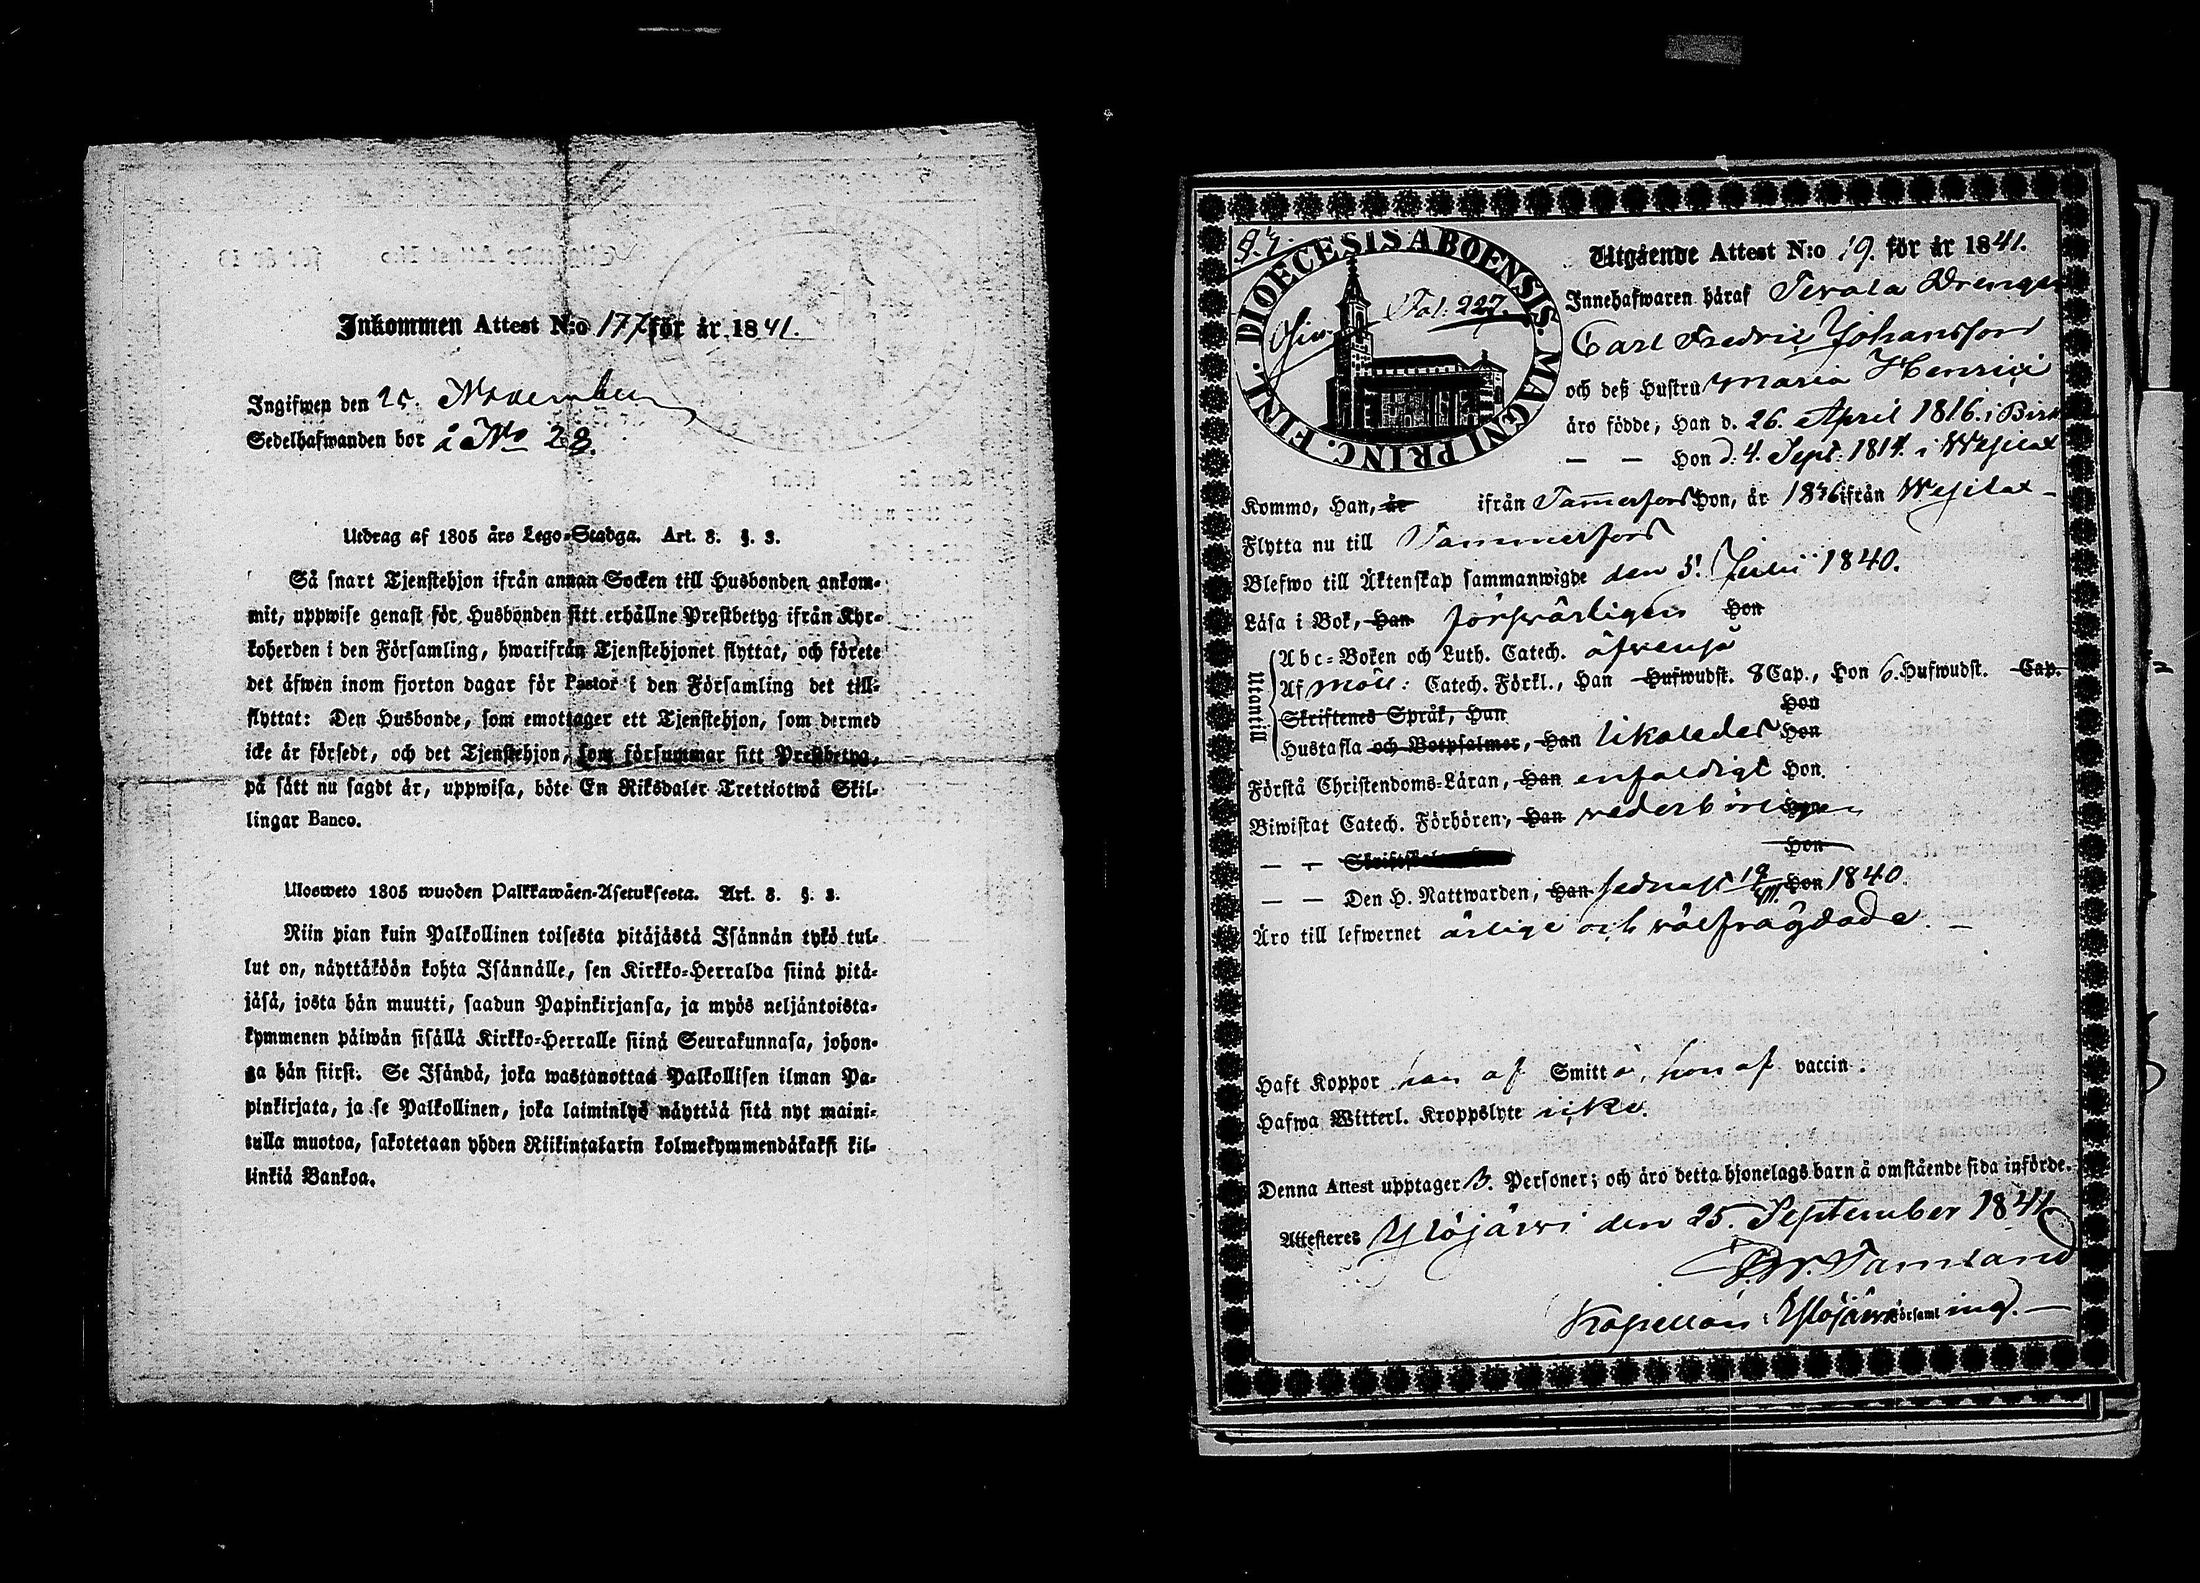 Inkommen Attest N:o 177 för år 1841.
Ingifwen den 25. November
Sedelhafwanden bor å No 28.
Utdrag af 1805 års Lego-Stadga. Art. 8. §. 3.
Så snart Tjenstehjon ifrån annan Socken till Husbonden ankom-
mit, uppwise genast för Husbonden sitt erhållne Prestbetyg ifrån Kyr-
koherden i den Församling, hwarifrån Tjenstehjonet flyttat, och förete
det äfwen inom fjorton dagar för Pastor i den Församling det till-
flyttat: Den Husbonde, som emottager ett Tjenstehjon, som dermed
icke är försedt, och det Tjenstehjon, som försummar sitt Prestbetyg,
på sätt nu sagdt är, uppwisa, böte En Riksdaler Trettiotwå Skil-
lingar Banco.
Ulosweto 1805 wuoden Palkkawäen-Asetuksesta. Art. 8. §. 3.
Niin pian kuin Palkollinen toisesta pitäjästä Isännän tykö tul-
lut on, näyttäköön kohta Isännälle, sen Kirkko-Herralda siinä pitä-
jäsä, josta hän muutti, saadun Papinkirjansa, ja myös neljäntoista-
kymmenen päiwän sisällä Kirkko-Herralle siinä Seurakunnasa, johon-
ga hän siirsi. Se Isändä, joka wastanottaa Palkollisen ilman Pa-
pinkirjata, ja se Palkollinen, joka laiminlyö näyttää sitä nyt maini-
tulla muotoa, sakotetaan yhden Riikintalarin kolmekymmendäkaksi kil-
linkiä Bankoa.
DIOECESIS ABOENSIS. MAGNI PRINC. FINL.
Fol. 227.
Utgående Attest N:o 19. för år 1841.
Innehafwaren häraf Terala Drengen
Carl Fredric Johansson
och deß Hustru Maria Henrici
äro födde, Han d. 26. April 1816. i Birk
— — Hon d. 4. Sept. 1814. i Wesilax
Kommo, Han, år ifrån Tammerfors Hon, år 1836 ifrån Wesilax
Flytta nu till Tammerfors
Blefwo till Äktenskap sammanwigde den 5. Julii 1840.
Läsa i Bok, Han försvarligen Hon
Utantill
Abc-Boken och Luth. Catech. äfvenså
Af Möll: Catech. Förkl., Han Hufwudst. 8 Cap., Hon 6. Hufwudst. Cap.
Skriftenes Språk, Han Hon
Hustafla och Botpsalmer, Han likaledes Hon
Förstå Christendoms-Läran, Han enfaldigt Hon
Biwistat Catech. Förhören, Han vederbörligen Hon
— — Hon
— — Den H. Nattwarden, Han sednast 19/VII Hon 1840.
Äro till lefwernet ärlige och välfrägdade. —
Haft Koppor han af Smitta, hon af vaccin.
Hafwa Witterl. Kroppslyte icke.
Denna Attest upptager 3. Personer; och äro detta hjonelags barn å omstående sida införde.
Attesteres Ylöjärvi den 25. September 1841
Tamland
Kapellan i Ylöjärvi Församling. —